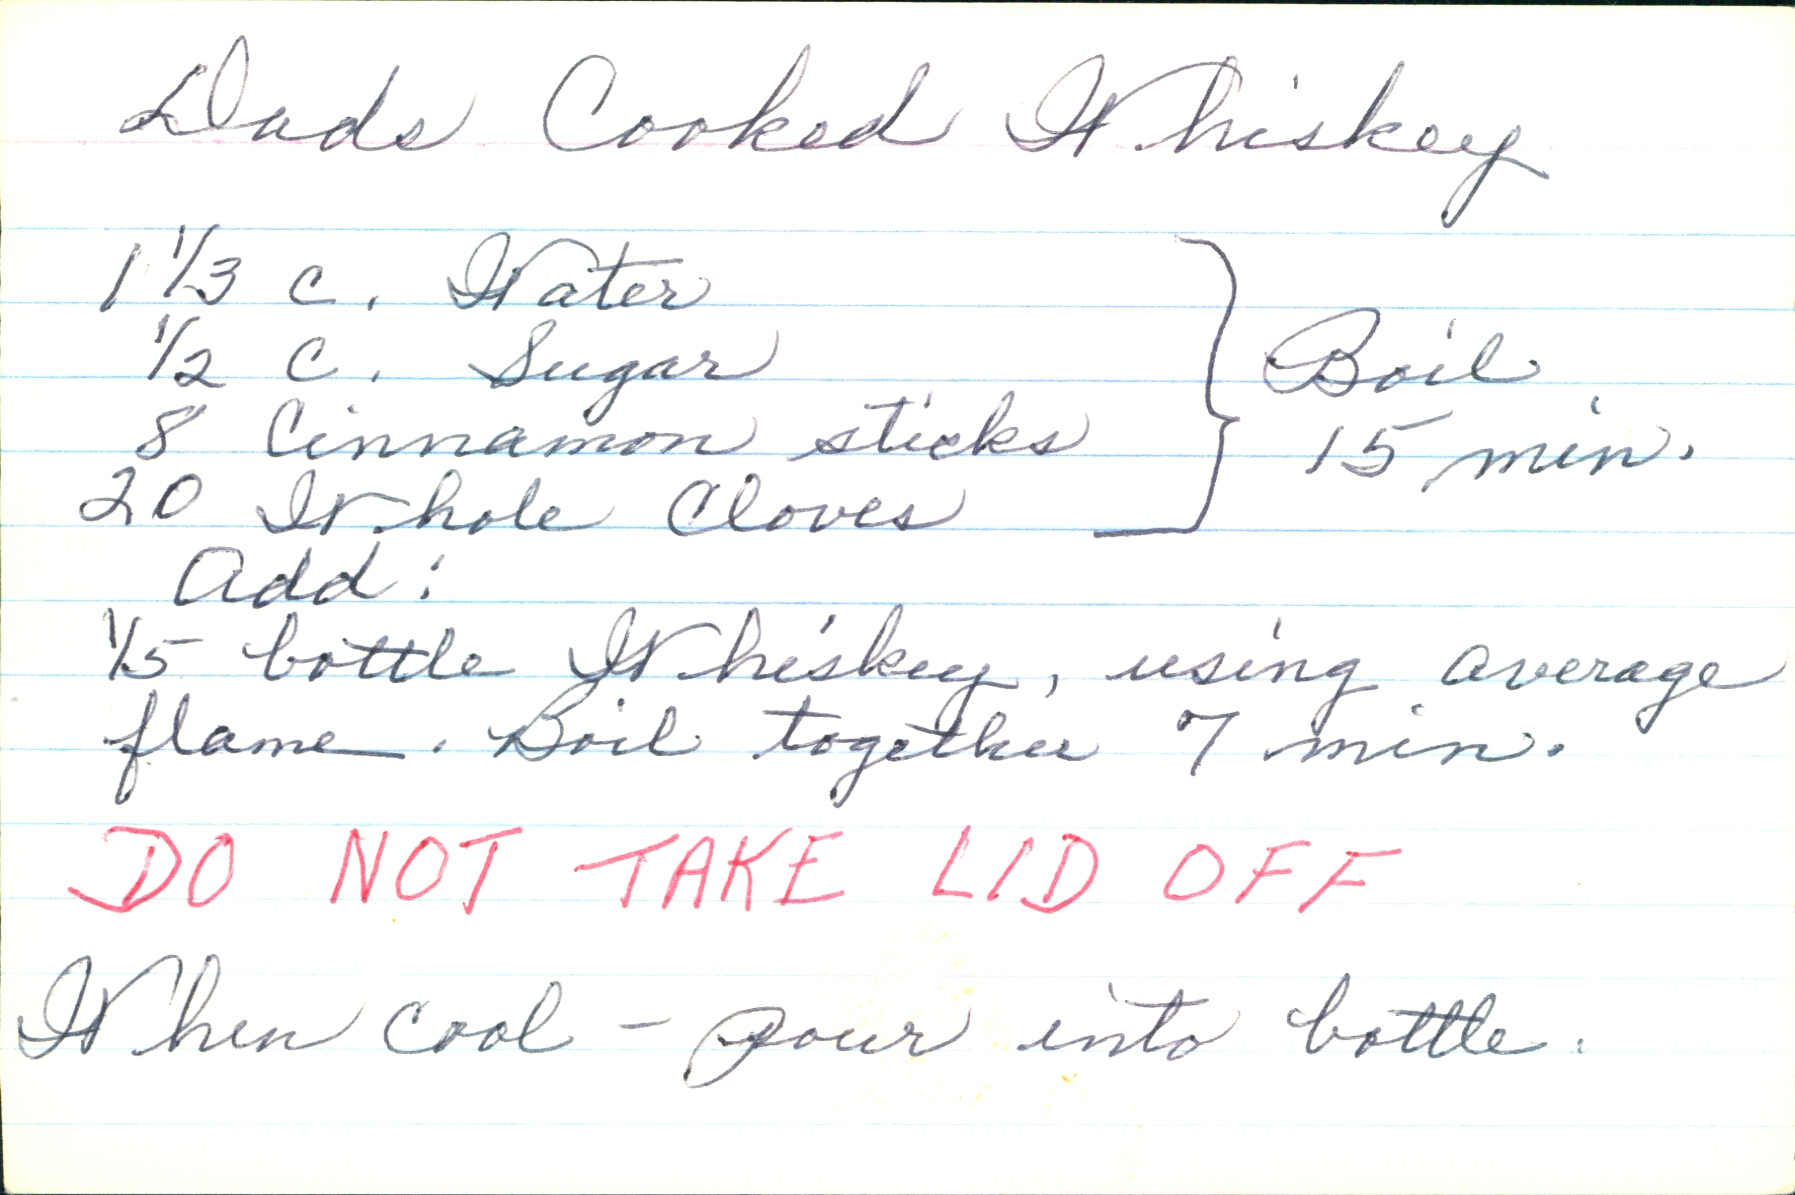 Dads Cooked Whiskey
1 1/3 c. Water
1/2 c. Sugar
8 Cinnamon sticks
20 Whole Cloves
Boil
15 min.
Add:
1/5 bottle Whiskey, using average
flame. Boil together 7 min.
DO NOT TAKE LID OFF
When cool - pour into bottle.